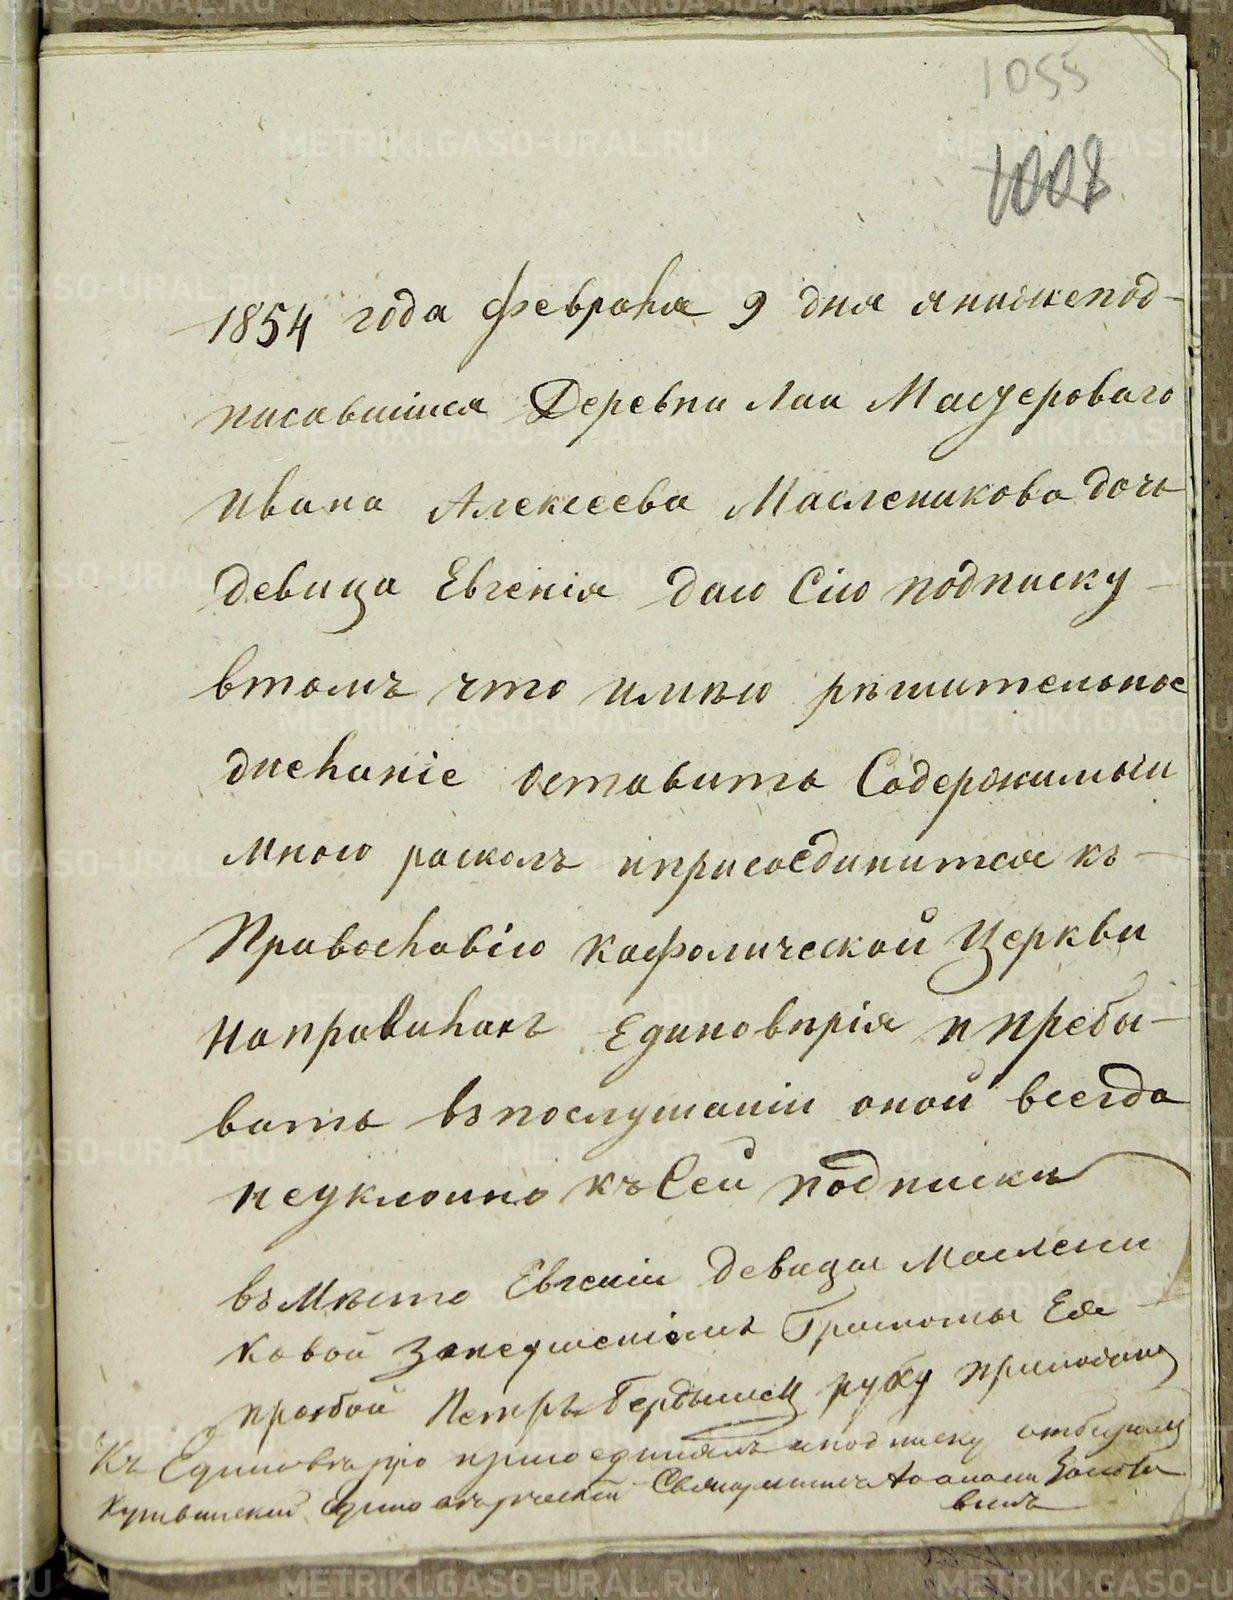 1055
1008
1854 года февраля 9 дня янижепод-
писавшаяся Деревни Лаи Мастероваго
Ивана Алексеева Масленикова дочь
девица Евгенія даю Сію подписку
втомъ что имѣю рѣшительное
дпеланіе оставить Содержимый
мною расколъ иприсоединится къ
Православію кафолической Церкви
направилахъ Единовѣрія и пребы-
вать въпослушаніи оной всегда
неуклонно къ Сей подпискѣ
въмѣсто Евгеніи девицы Маслени
ковой Занеумѣніемъ Грамоты Ея
прозбой Петръ руку приложилъ
Къ Единовѣрію присоединялъ иподписку отбиралъ
Кушвинский Единовѣрческій Священникъ